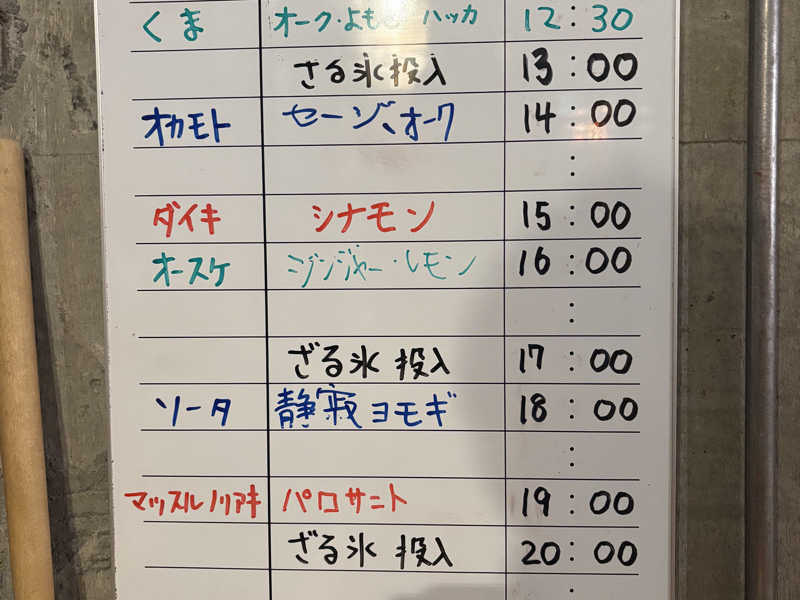 くま オーク・よもぎ ハッカ 12:30
ざる氷投入 13:00
オカモト セージ、オーク 14:00
:
ダイキ シナモン 15:00
オースケ ジンジャー・レモン 16:00
:
ざる氷 投入 17:00
ソータ 静寂ヨモギ 18:00
:
マッスルノリアキ パロサント 19:00
ざる氷 投入 20:00
: